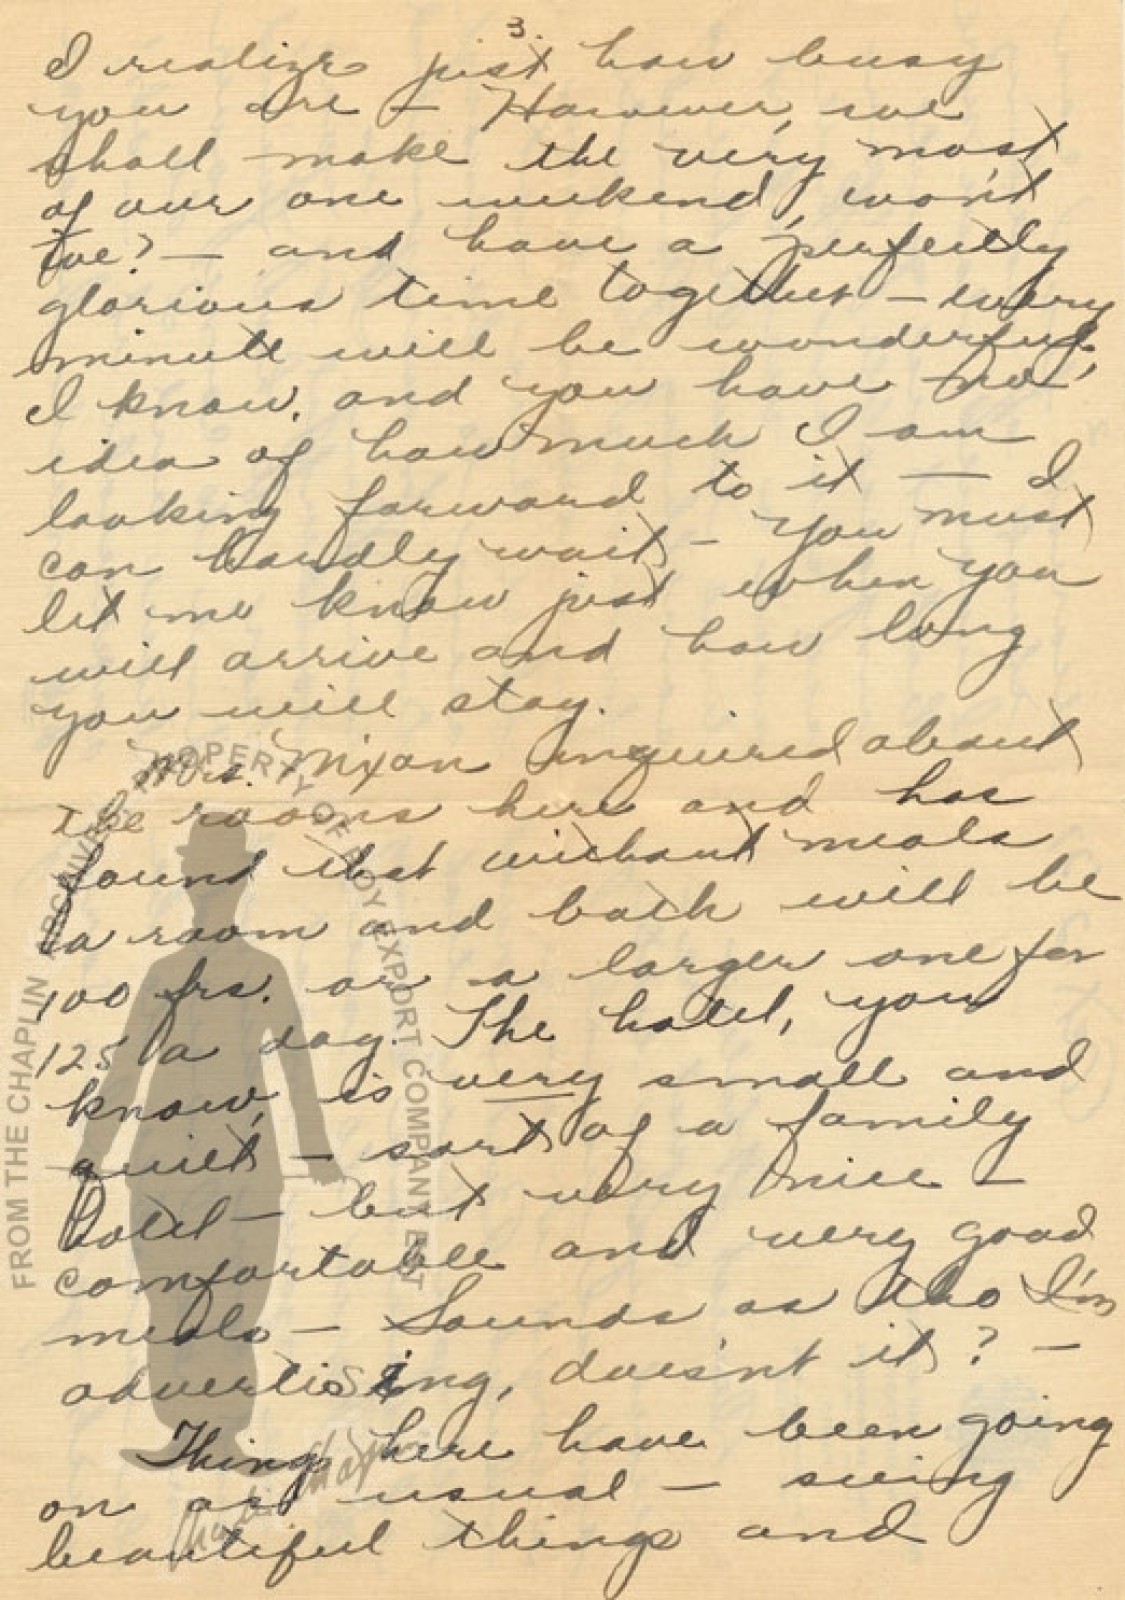 3.
I realize just how busy
you are — However, we
shall make the very most
of our one weekend, won't
we? — and have a perfectly
glorious time together — every
minute will be wonderful,
I know, and you have no
idea of how much I am
looking forward to it — I
can hardly wait — You must
let me know just when you
will arrive and how long
you will stay.
Mrs. Nixon inquired about
the rooms here and has
found that without meals
a room and bath will be
100 frs. or a larger one for
125 a day. The hotel, you
know, is very small and
quiet — sort of a family
hotel — but very nice —
comfortable and very good
meals — Sounds as tho I'm
advertising, doesn't it? —
Things here have been going
on as usual — seeing
beautiful things and
FROM THE CHAPLIN ARCHIVES PROPERTY OF ROY EXPORT COMPANY EST
Charlie Chaplin